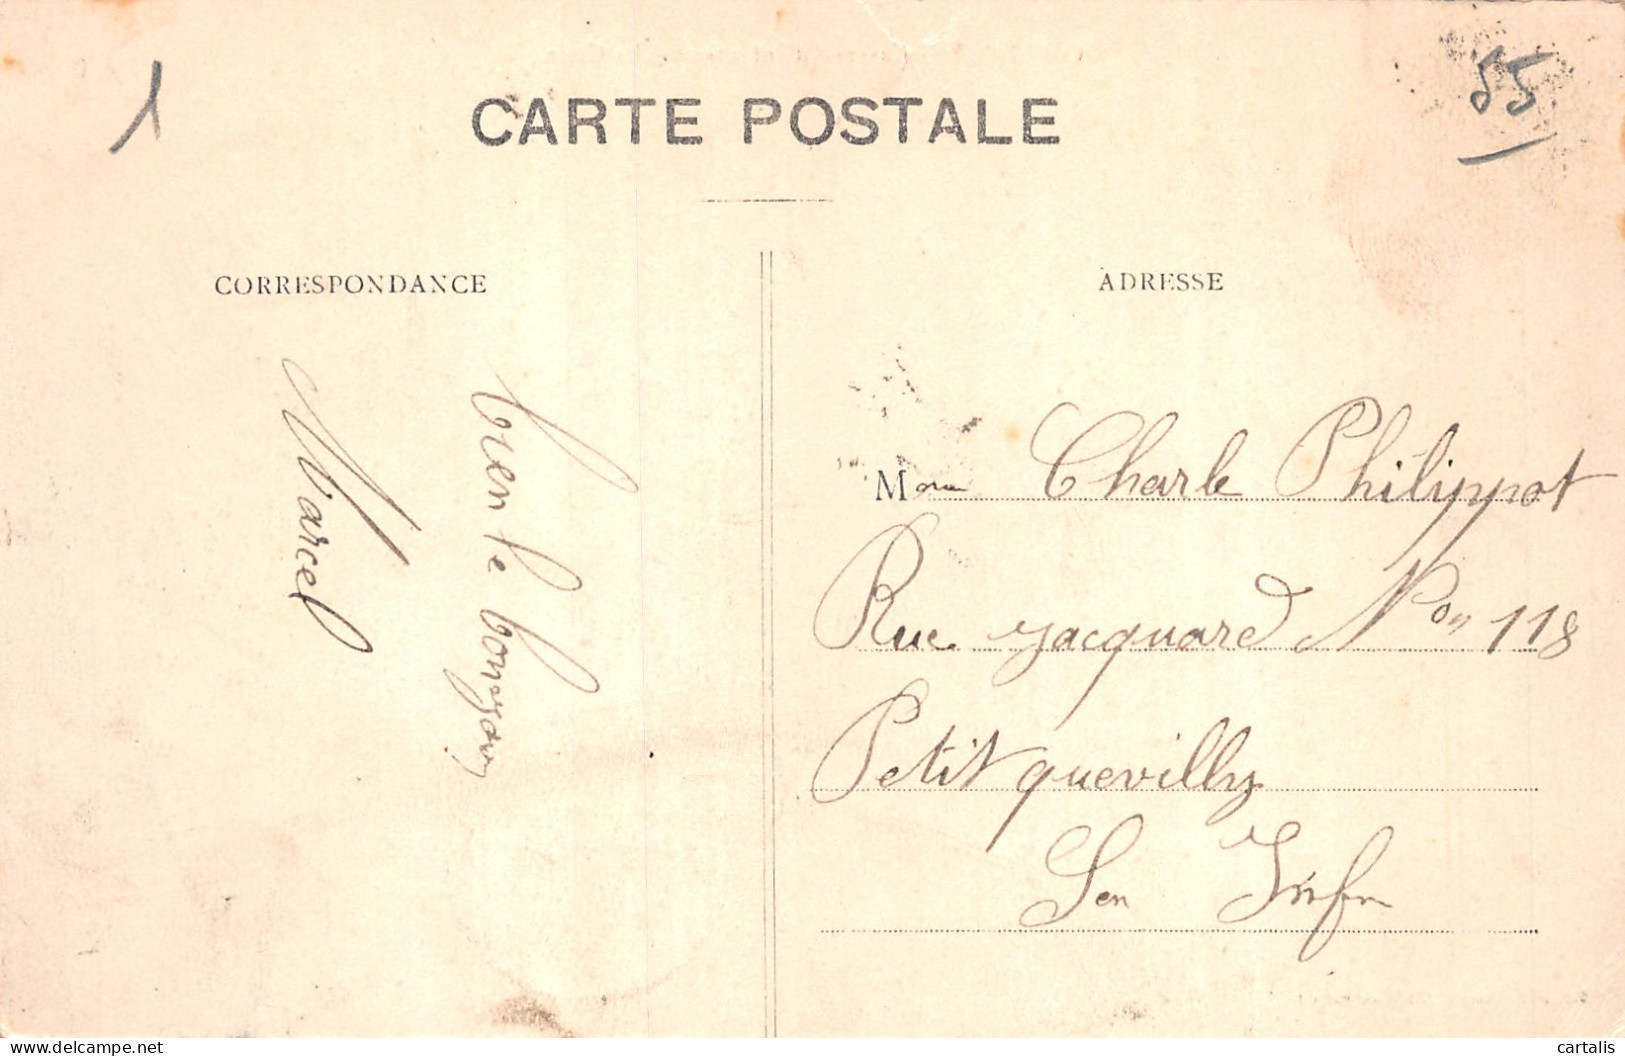 1
55
CARTE POSTALE
CORRESPONDANCE
ADRESSE
bien le bonjour
Marcel
Mon Charle Philippot
Rue Jacquard Non 118
Petit quevilly
Sen Infr
www.delcampe.net
cartalis